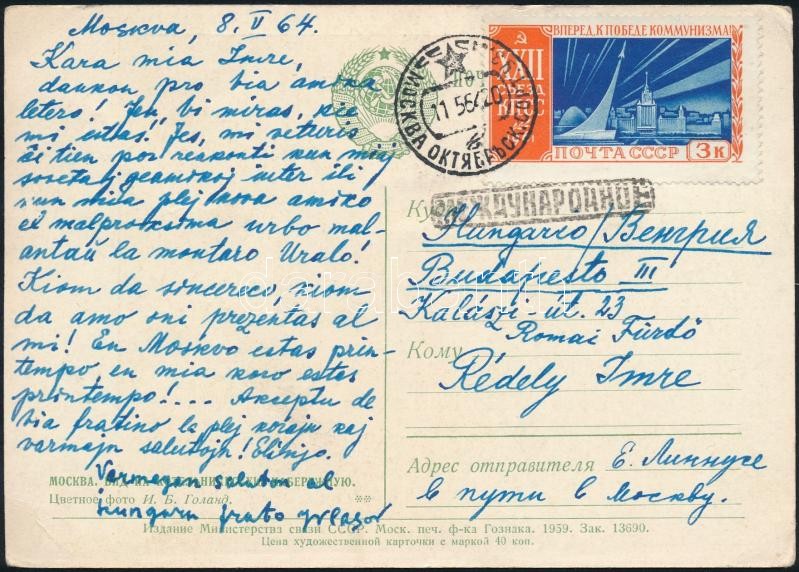 Moskva, 8. V 64.
Kara mia Imre,
dankon pro bia
letero! Jen, bi miras, ke
mi estas! Jes, mi veturis
ĉi tien por renkonti kun miaj
kaj inter ili
kun mia plej nova amiko
el malproksima urbo mal-
antaŭ la montaro Uralo!
Kiom da sincereco, kiom-
da amo oni prezentas al
mi! En Moskvo estas prin-
tempo, en mia koro estas
printempo!... Akceptu de
bia fratino la plej korajn kaj
varmajn salutojn! Elinjo.
Varmegan saluton al
hungara frato
МОСКВА. ВИД НА НАБЕРЕЖНУЮ.
Цветное фото И. Б. Голанд.
ВПЕРЕД, К ПОБЕДЕ КОММУНИЗМА!
XXII
СЪЕЗД
КПСС
ПОЧТА СССР 3К
МОСКВА ОКТЯБРЬСК.
МЕЖДУНАРОДНОЕ
Куда
Hungario/Венгрия
Budapesto III
Kalászi út. 23
Romai Fürdő
Кому
Rédely Imre
Адрес отправителя Е. Линнусе
в пути в Москву.
Издание Министерства связи СССР. Моск. печ. ф-ка Гознака. 1959. Зак. 13690.
Цена художественной карточки с маркой 40 коп.
darabanth